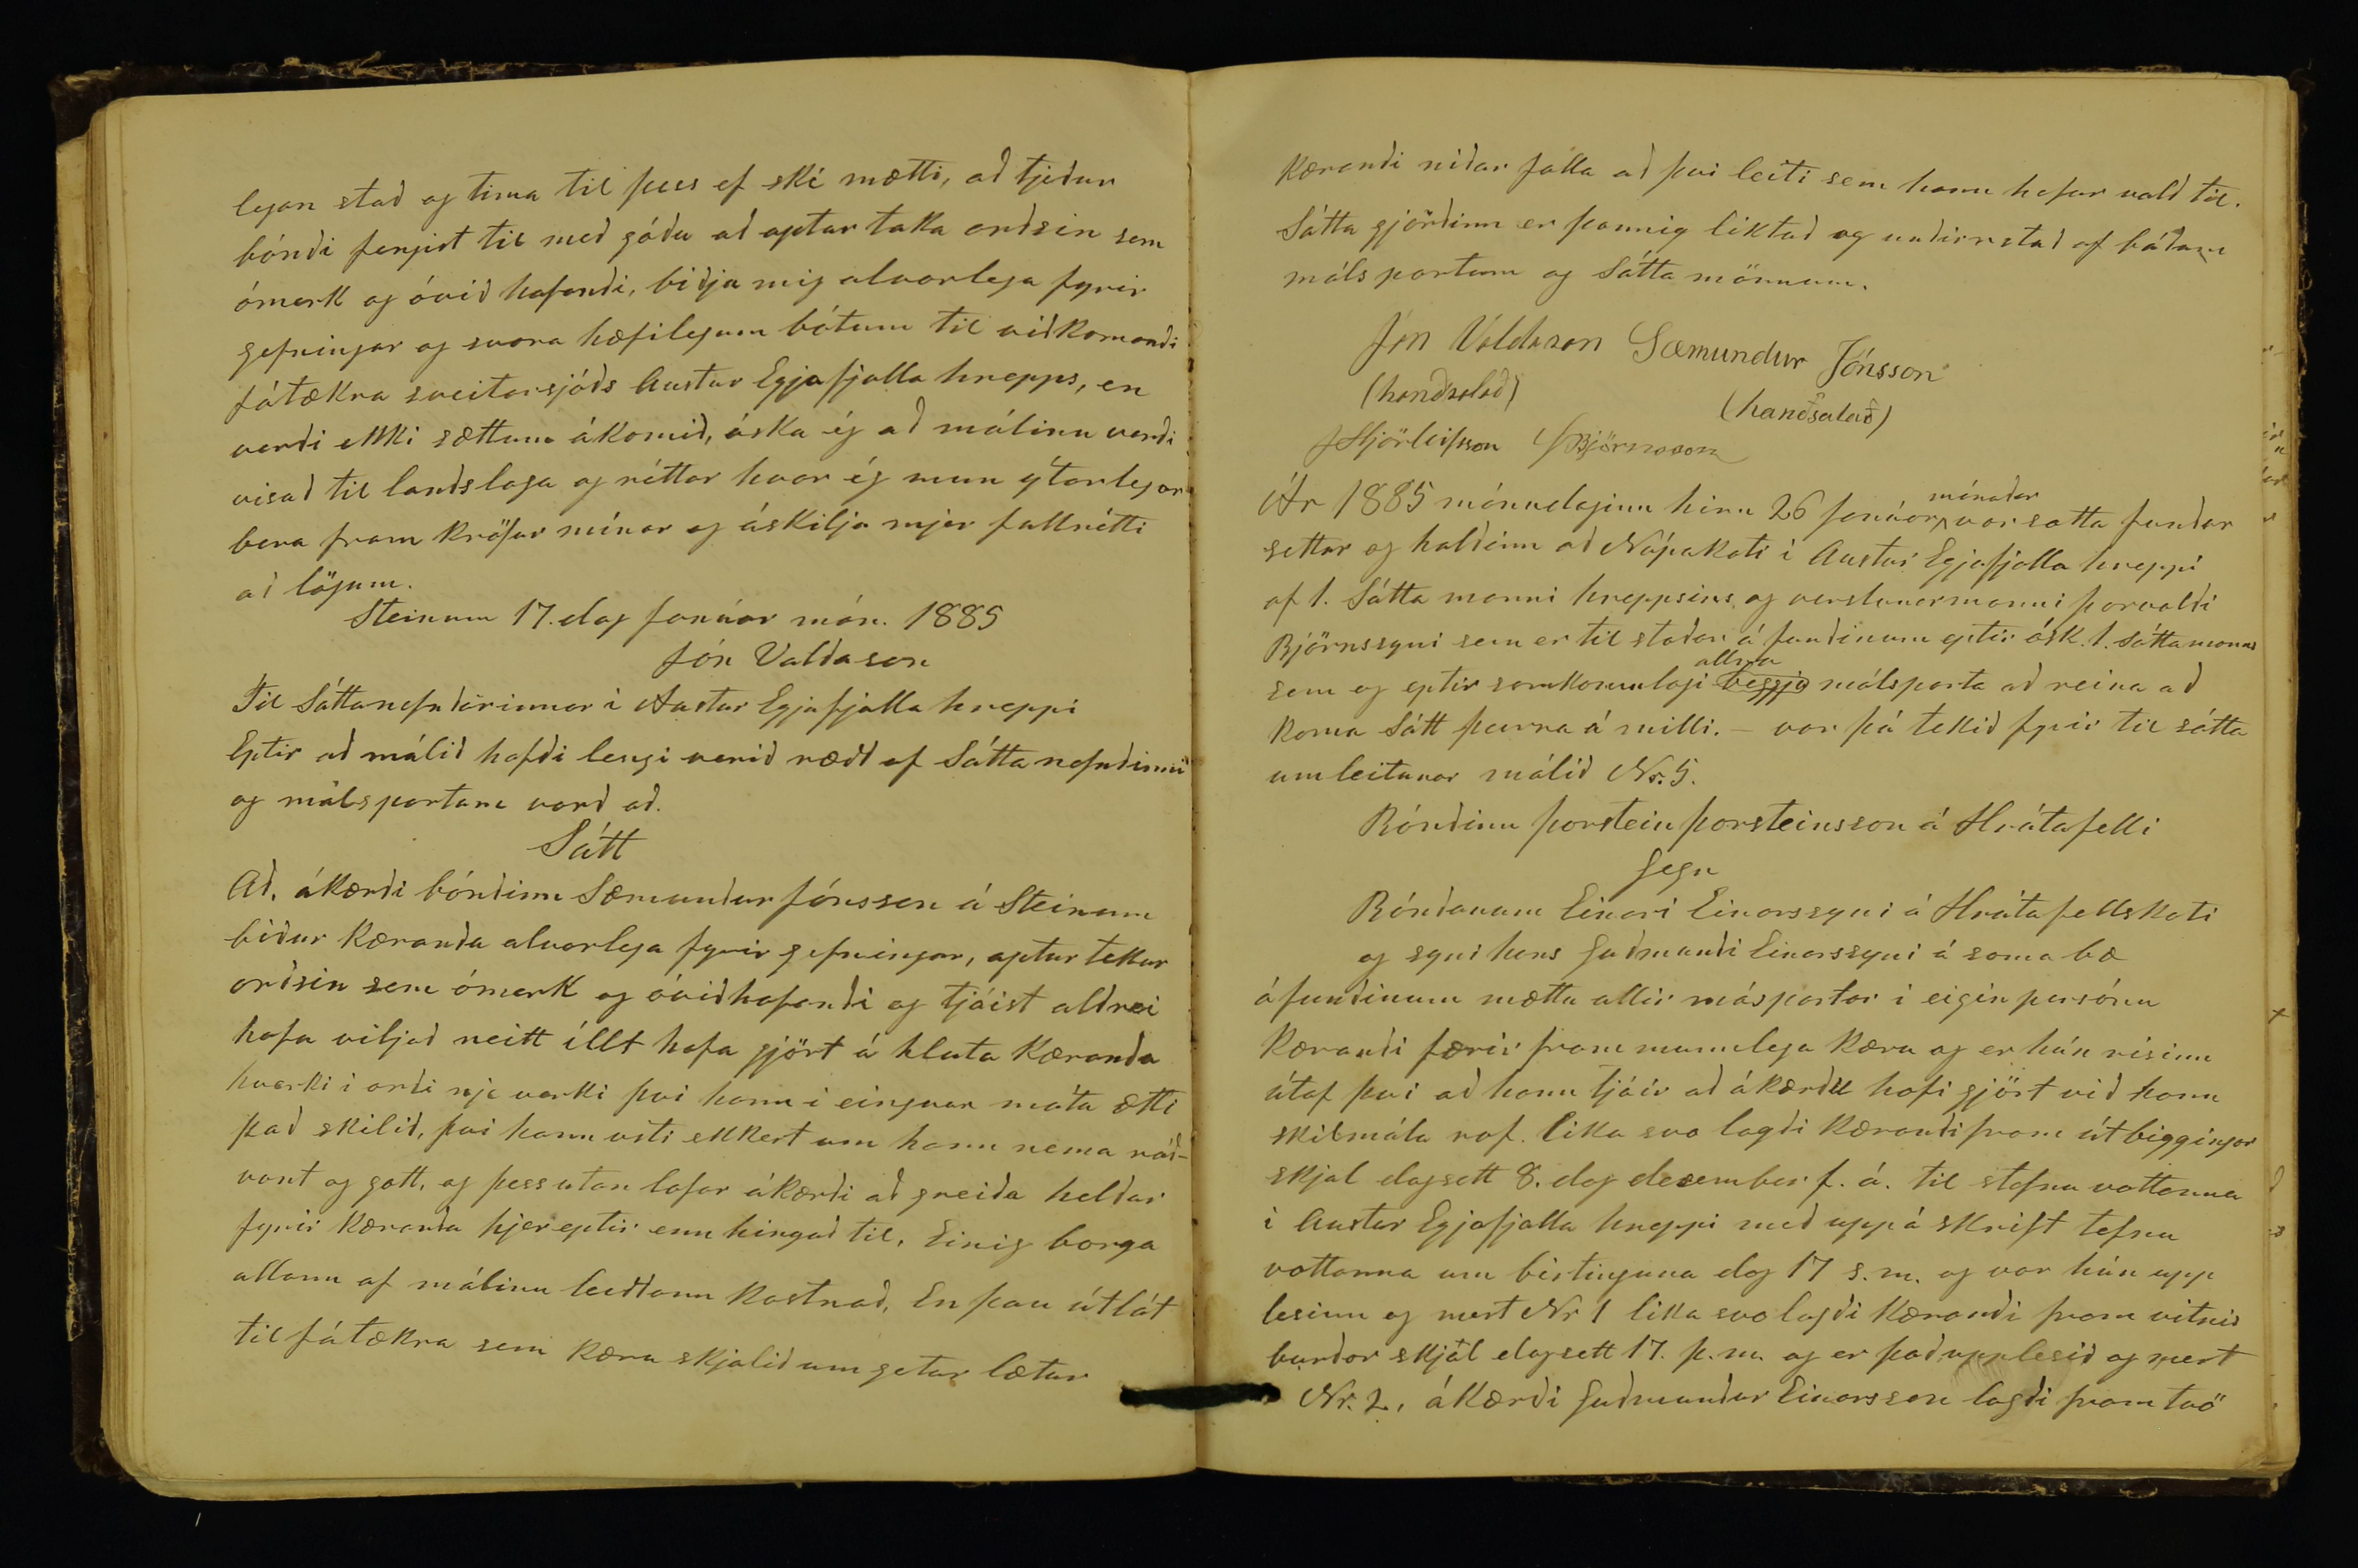 legan stað og tima til þess ef ské mætti, að tjeður
bóndi fengist til með góðu að aptur taka orðsin sem
ómerk og óvið hafandi, biðja mig alvarlega fyrir
gefningar og svara hæfilegum bótum til viðkomandi
fátækra sveitarsjóðs Austur Eyjafjalla hrepps, en
verði ekki sættum ákomið, óska ég að málinu verði
visað til landslaga og réttar hvar ég mun ýtarlegar
bera fram kröfur mínar og áskilja mjer fullrétti
að lögum.
Steinum 17. dag Janúar mán. 1885
Jón Valdason
Til Sáttanefndarinnar i Austur Eyjafjalla hreppi
Eptir að málið hafði lengi verið rædt af Sátta nefndinni
og málspartum varð að.
Sátt
Að, ákærði bóndinn Sæmundur Jónsson á Steinum
biður Kæranda alvarlega fyrir gefningar, aptur tekur
orðsin sem ómerk og óviðhafandi og tjáist aldrei
hafa viljað neitt íllt hafa gjört á hluta Kæranda
hvorki i orði nje verki þvi hann i eingvan máta ætti
það skilið, þvi hann visti ekkert um hann nema ráð-
vant og gott, og þess utan lofar ákærði að greiða heldur
fyrir Kæranda hjer eptir enn hingað til, Einig borga
allann af málinu leiddann Kostnað, En þau útlát
til fátækra sem Kæru skjalið um getur lætur
Kærandi niður falla að þvi leiti sem hann hefur vald til.
Sátta gjörðinn er þannig liktað og undirritað af báðum
máls partum og Sátta mönnum.
Jón Valdason Sæmundur Jónsson
(handsalað)
(handsalað)
J Hjörleifsson Þ Björnsson
Ár 1885 mánudaginn hinn 26 Janúar mánaðar var satta fundur
settur og haldinn að Núpakoti i Austur Eyjafjalla hreppi
af 1. Sátta manni hreppsins og verslunarmanni Þorvaldi
Björnssyni sem er til staðar á fundinum eptir ósk. 1. Sáttamanns
sem og eptir samkomulagi beggja allra málsparta að reina að
koma Sátt þeirra á milli. – var þá tekið fyrir til sátta
umleitunar málið Nr. 5.
Bóndinn Þorstein Þorsteinsson á Hrútafelli
Gegn
Bóndanum Einari Einarssyni á Hrútafellskoti
og syni hans Guðmundi Einarssyni á sama bæ
á fundinum mættu allir máspartar i eigin persónu
Kærandi færir fram munnlega Kæru og er hún risinn
útaf þvi að hann tjáir að ákærdu hafi gjört við hann
skilmála rof. lika svo lagði Kærandi fram útbiggingar
skjal dagsett 8. dag desember f. á. til stefnu vottanna
i Austur Eyjafjalla hreppi með uppá skrift tefnu
vottanna um birtinguna dag 17 s.m. og var hún upp
lesinn og mert Nr 1 lika svo lagði Kærandi fram vitnis
burðar skjál dagsett 17. þ.m. og er það upplesið og mert
Nr. 2, ákærði Guðmundur Einarsson lagði fram tvö